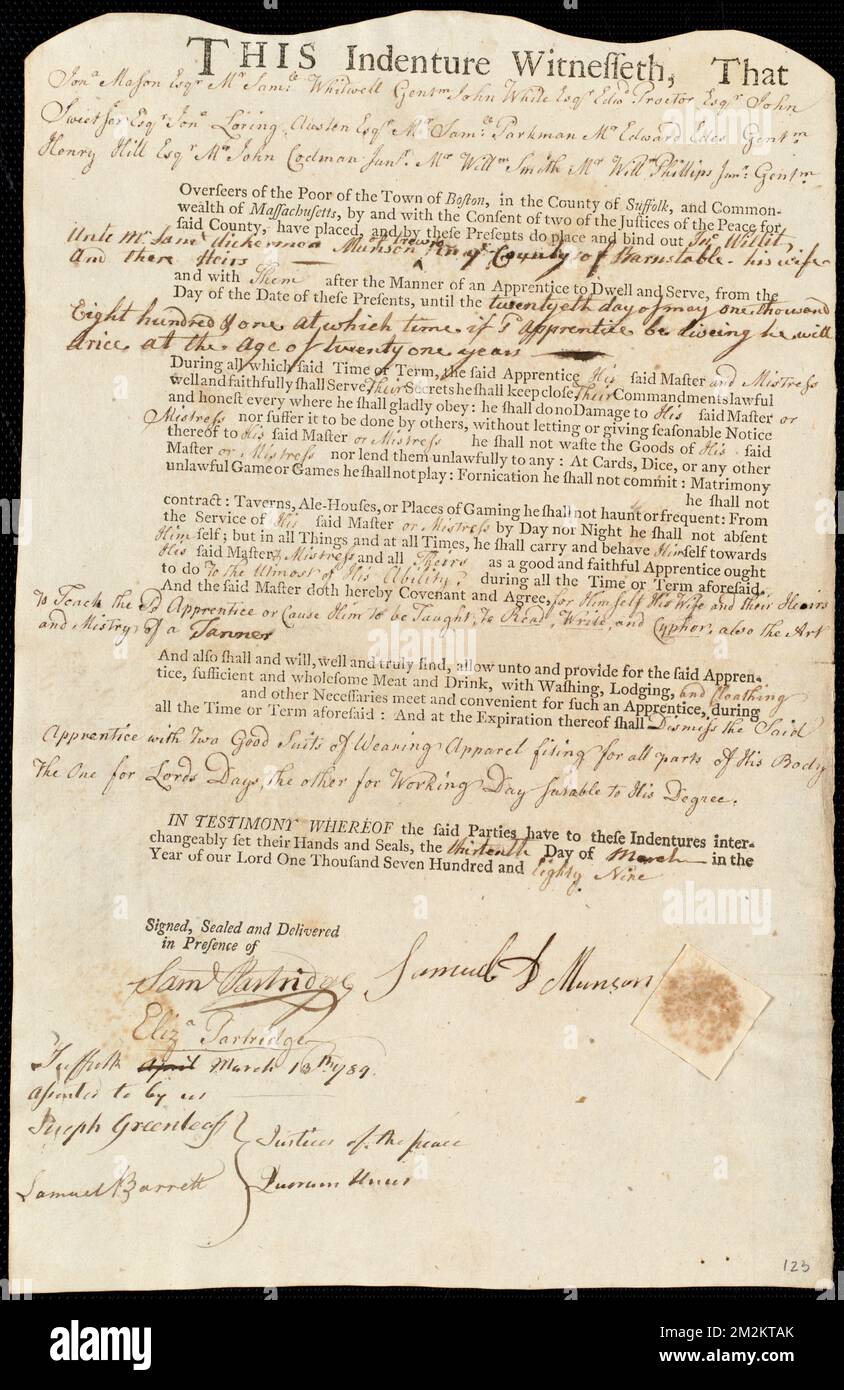 THIS Indenture Witneſſeth, That
Jonᵃ Mason Esqʳ Mʳ Samˡˡ Whitwell Gentᵐ John White Esqʳ Edwᵈ Proctor Esqʳ John
Sweetser Esqʳ Jonᵃ Loring Austen Esqʳ Mʳ Samˡˡ Parkman Mʳ Edward Edes Gentᵐ
Henry Hill Esqʳ Mʳ John Codman Junʳ. Mʳ Willᵐ Smith Mʳ Willᵐ Phillips Junʳ Gentᵐ
Overſeers of the Poor of the Town of Boſton, in the County of Suffolk, and Common-
wealth of Maſſachuſetts, by and with the Conſent of two of the Juſtices of the Peace for
ſaid County, have placed, and by theſe Preſents do place and bind out Jnᵒ Willit
Unto Mʳ Samˡ dickermon Munson Truro in yᵉ County of Barnstable - his wife
And there Heirs
and with Them after the Manner of an Apprentice to Dwell and Serve, from the
Day of the Date of theſe Preſents, until the twentyeth day of may one thousand
Eight hundred & one at which time if sᵈ apprentice be liveing he will
arice at the age of twenty one years
During all which ſaid Time or Term, the ſaid Apprentice His ſaid Maſter and Mistress
well and faithfully ſhall Serve, Their Secrets he ſhall keep cloſe, Their Commandments lawful
and honeſt every where he ſhall gladly obey: he ſhall do no Damage to His ſaid Maſter or
Mistress nor ſuffer it to be done by others, without letting or giving ſeaſonable Notice
thereof to His ſaid Maſter or Mistress he ſhall not waſte the Goods of His ſaid
Maſter or Mistress nor lend them unlawfully to any: At Cards, Dice, or any other
unlawful Game or Games he ſhall not play: Fornication he ſhall not commit: Matrimony
he ſhall not
contract: Taverns, Ale-Houſes, or Places of Gaming he ſhall not haunt or frequent: From
the Service of His ſaid Maſter or Mistress by Day nor Night he ſhall not abſent
Him ſelf; but in all Things and at all Times, he ſhall carry and behave Himſelf towards
His ſaid Maſter & Mistress and all Theirs as a good and faithful Apprentice ought
to do To the Utmost of His Ability, during all the Time or Term aforeſaid.
And the ſaid Maſter doth hereby Covenant and Agree, for Himself His Wife and their Heirs
To Teach the sᵈ Apprentice or Cause Him to be Taught, to Read, Write, and Cypher, also the Art
and Mistry of a Tanner
And alſo ſhall and will, well and truly find, allow unto and provide for the ſaid Appren-
tice, ſufficient and wholeſome Meat and Drink, with Waſhing, Lodging, and Cloathing
and other Neceſſaries meet and convenient for ſuch an Apprentice, during
all the Time or Term aforeſaid: And at the Expiration thereof ſhall Dismiss the Said
Apprentice with two Good Suits of Wearing Apparel fiting for all parts of His Body
The One for Lords Days, the other for Working Day sutable to His Degree.
IN TESTIMONY WHEREOF the ſaid Parties have to theſe Indentures inter-
changeably ſet their Hands and Seals, the thirtenth Day of March in the
Year of our Lord One Thouſand Seven Hundred and Eighty Nine
Signed, Sealed and Delivered
in Preſence of
Samˡ Partridge Samuel D Munson
Elizᵃ Partridge
Suffolk April March 13th 1789
assented to by us
Joseph Greenleaf Justices of the peace
Samuel Barrett Quorum Unus
123
alamy
Image ID: 2M2KTAK
www.alamy.com